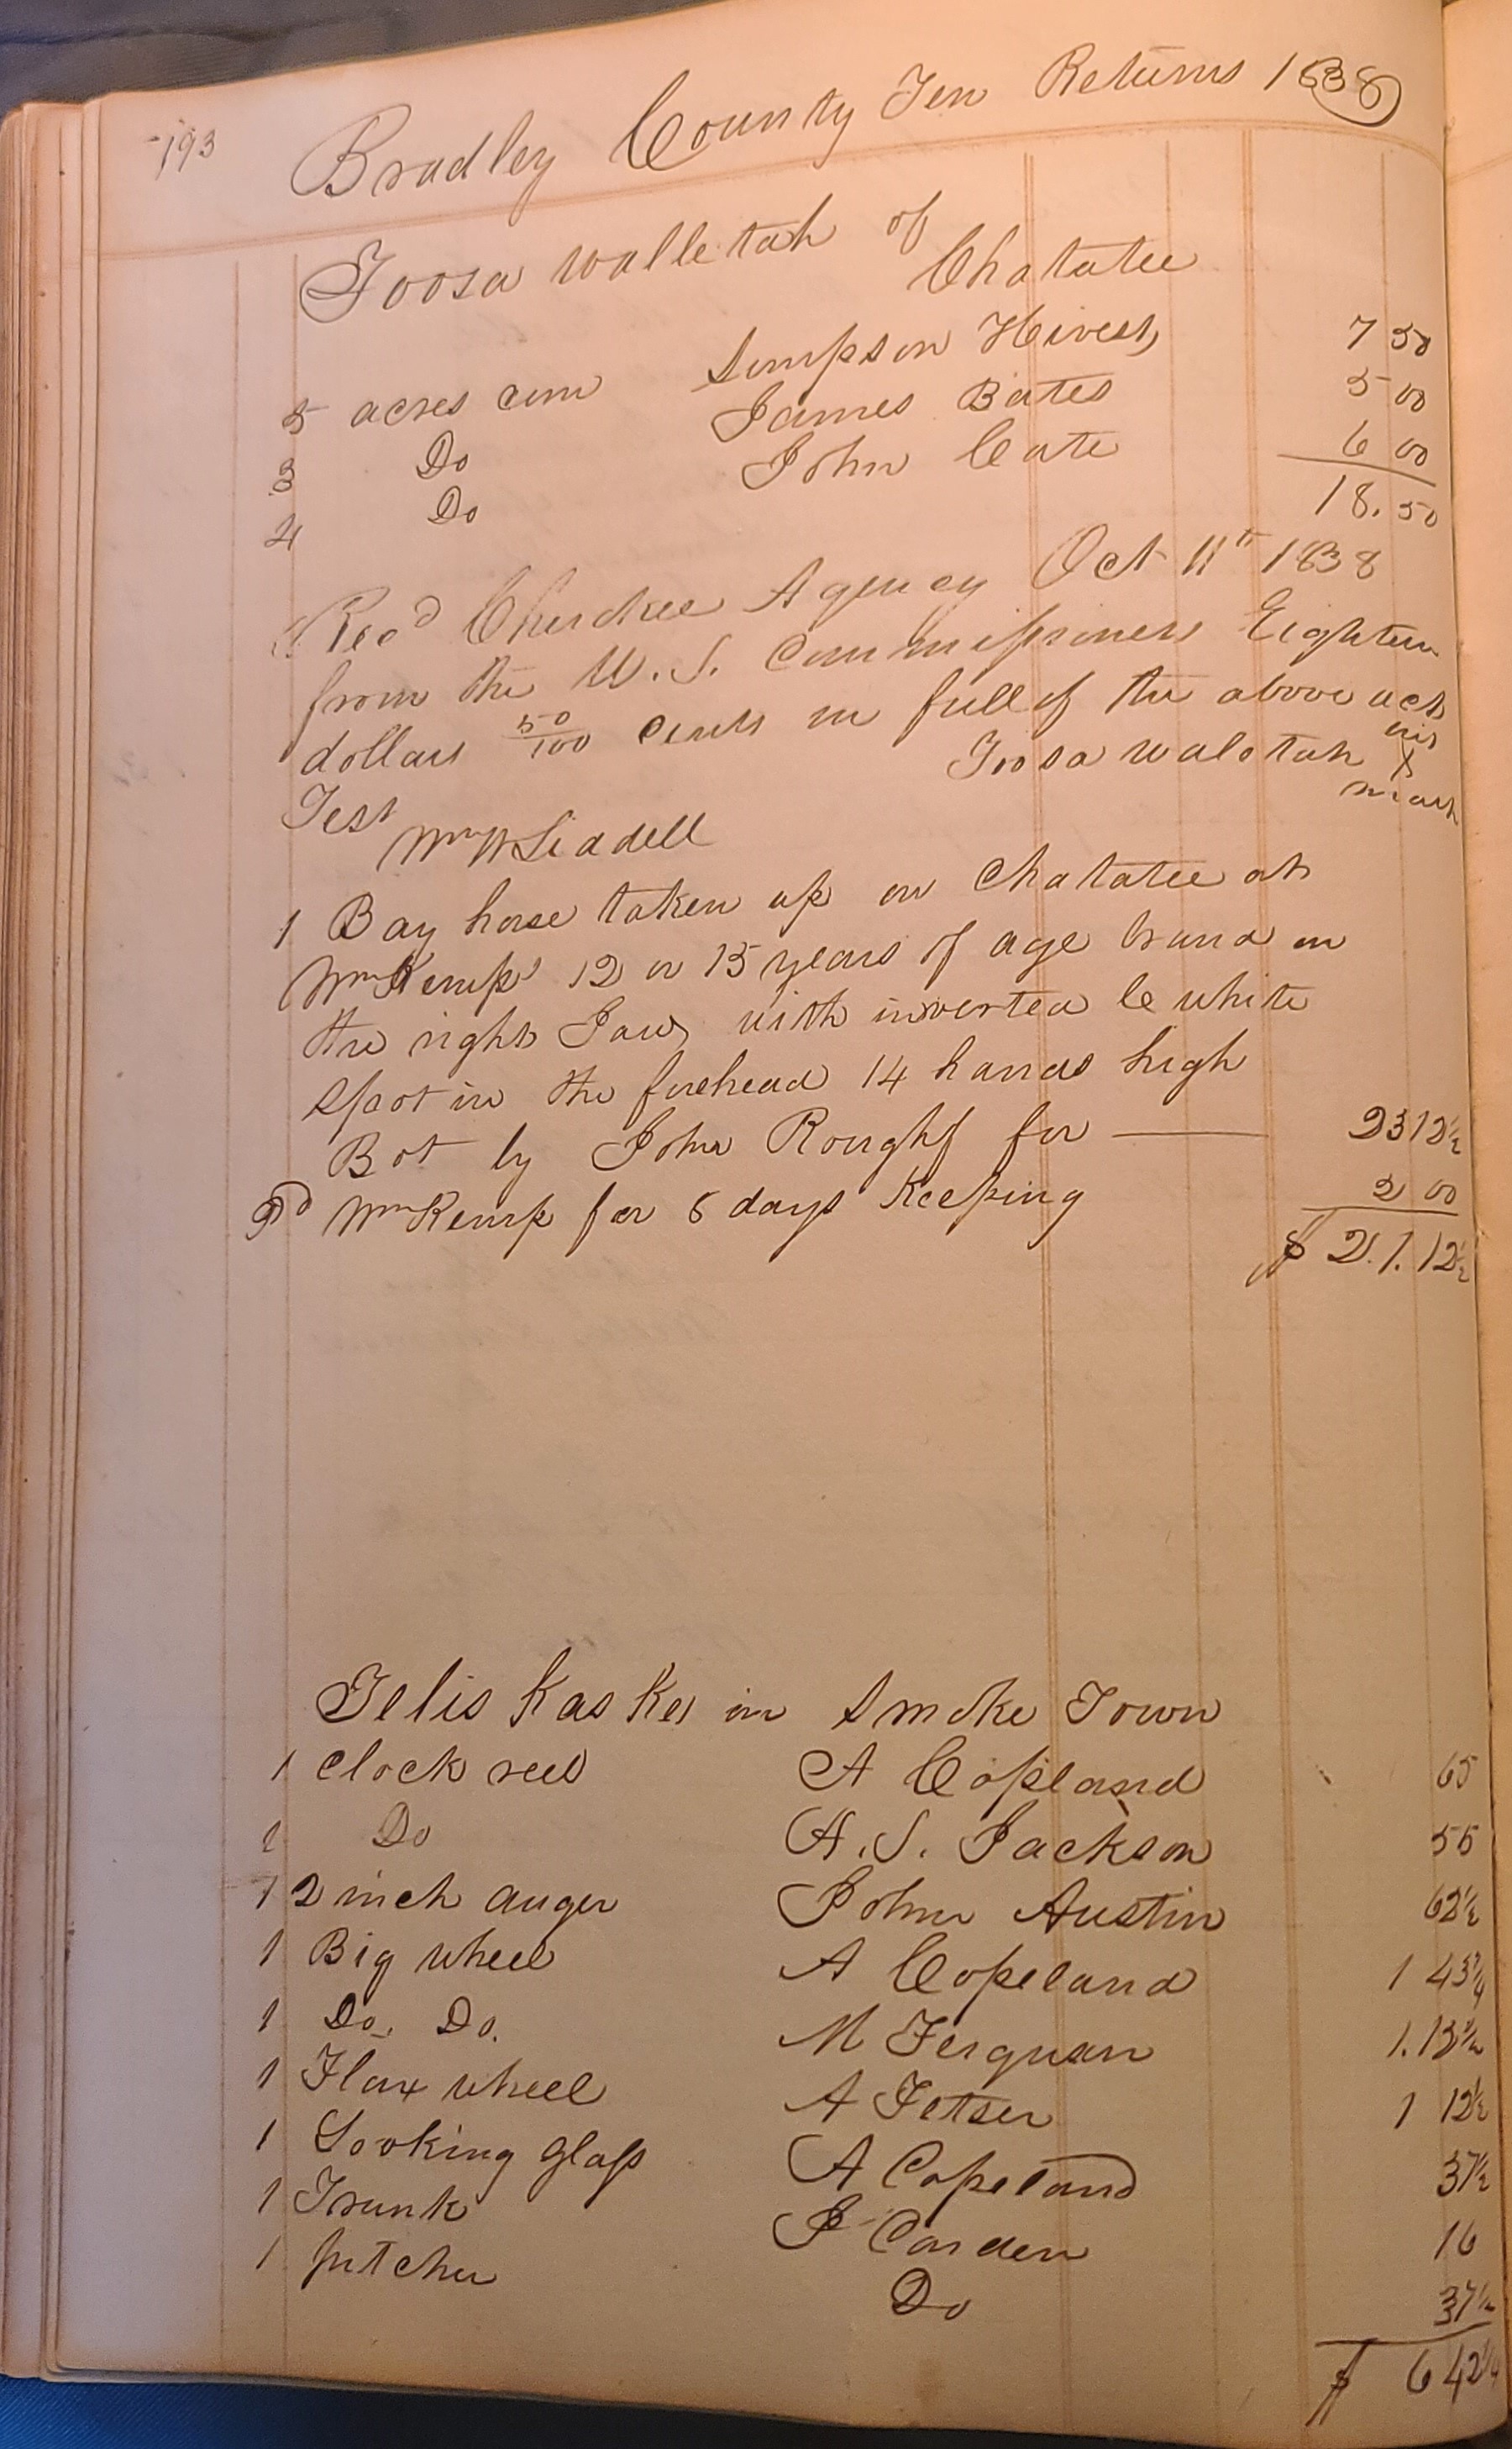 193
Bradley County Ten Returns 1838
Toosa walletah of
Chatatee
5 acres corn Simpson 7 50
3 Do James Bates 5 00
4 Do John Cate 6 00
18.50
Recd Cherokee Agency Oct 11th 1838
from the U.S. Commissioners Eighteen
dollars 50/100 cents in full of the above act
Toosa walotah his
X
mark
Test
Wm W Liddell
1 Bay horse taken up on Chatatee at
Wm Kemps 12 or 15 years of age brand on
the right Jaw with inverted C white
spot in the forehead 14 hands high
Bot by John for — 23 12½
Pd Wm Kemp for 8 days Keeping 2 00
$ 21.12½
Teliskaskee in Smoke Town
1 Clock reel A Copland 65
1 Do A.S. Jackson 55
1 2 inch auger John Austin 62½
1 Big wheel A Copeland 1 43¾
1 Do. Do. M Ferguson 1.12½
1 Flax wheel A Fetser 1 12½
1 Looking Glass A Copeland 37½
1 Trunk P Carden 16
1 pitcher Do 37½
$ 6 42¼